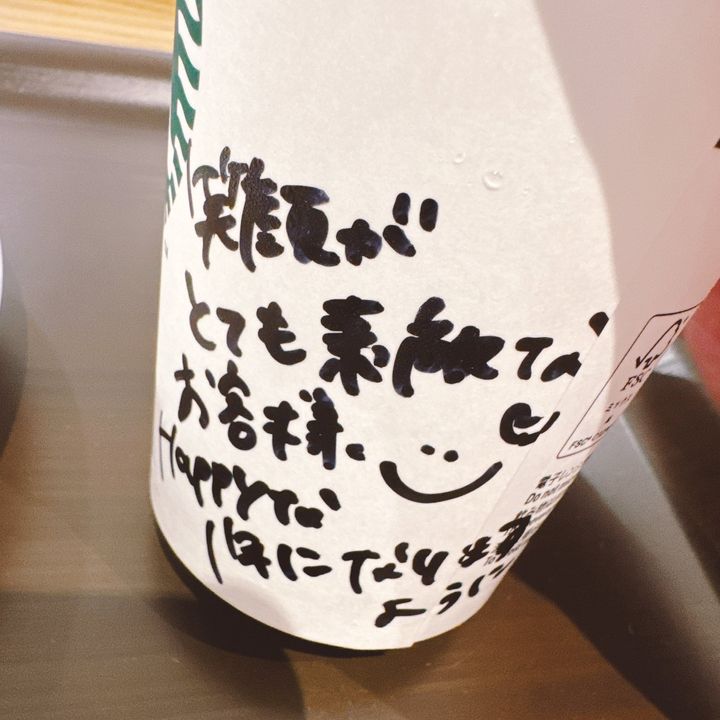 笑顔が
とても素敵な
お客様、
Happyな
1年になります
ように
FSC
ミックス
電子レンジ
Do not